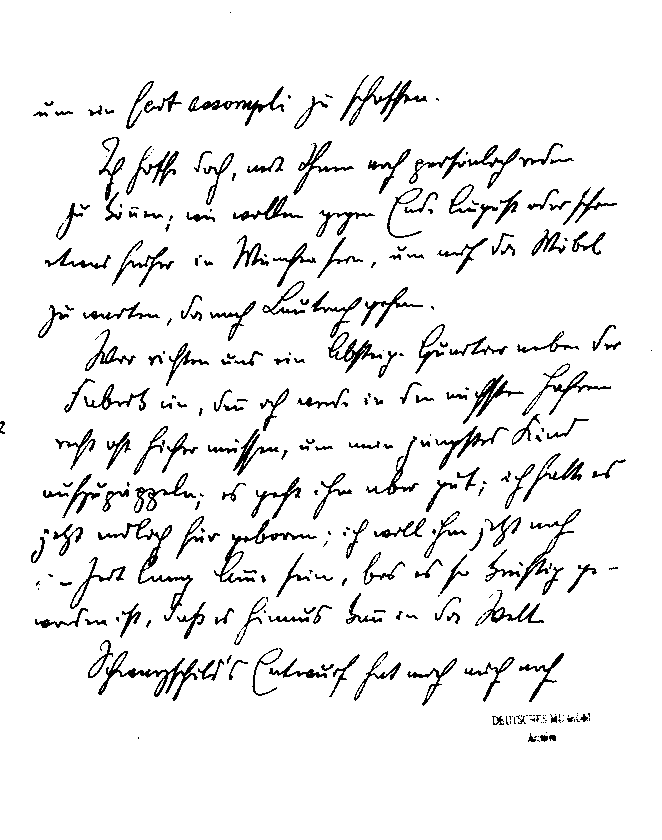 um ein fait accompli zu schaffen.
Ich hoffe doch, mit Ihnen noch persönlich reden
zu können; wir wollen gegen Ende August oder schon
etwas früher in München sein, um auf die Möbel
zu warten, danach Lautrach gehen.
Wir richten uns ein Absteige-Quartier neben der
Fabrik ein, denn ich werde in den nächsten Jahren
recht oft hieher müssen, um mein jüngstes Kind
aufzupäppeln; es geht ihm aber gut; ich halte es
jetzt endlich für geboren; ich will ihm jetzt noch
Zeit lang Amme sein, bis es so kräftig ge-
worden ist, daß es hinaus kann in die Welt
Schwarzschild's Entwurf hat mich auch noch
DEUTSCHES MUSEUM